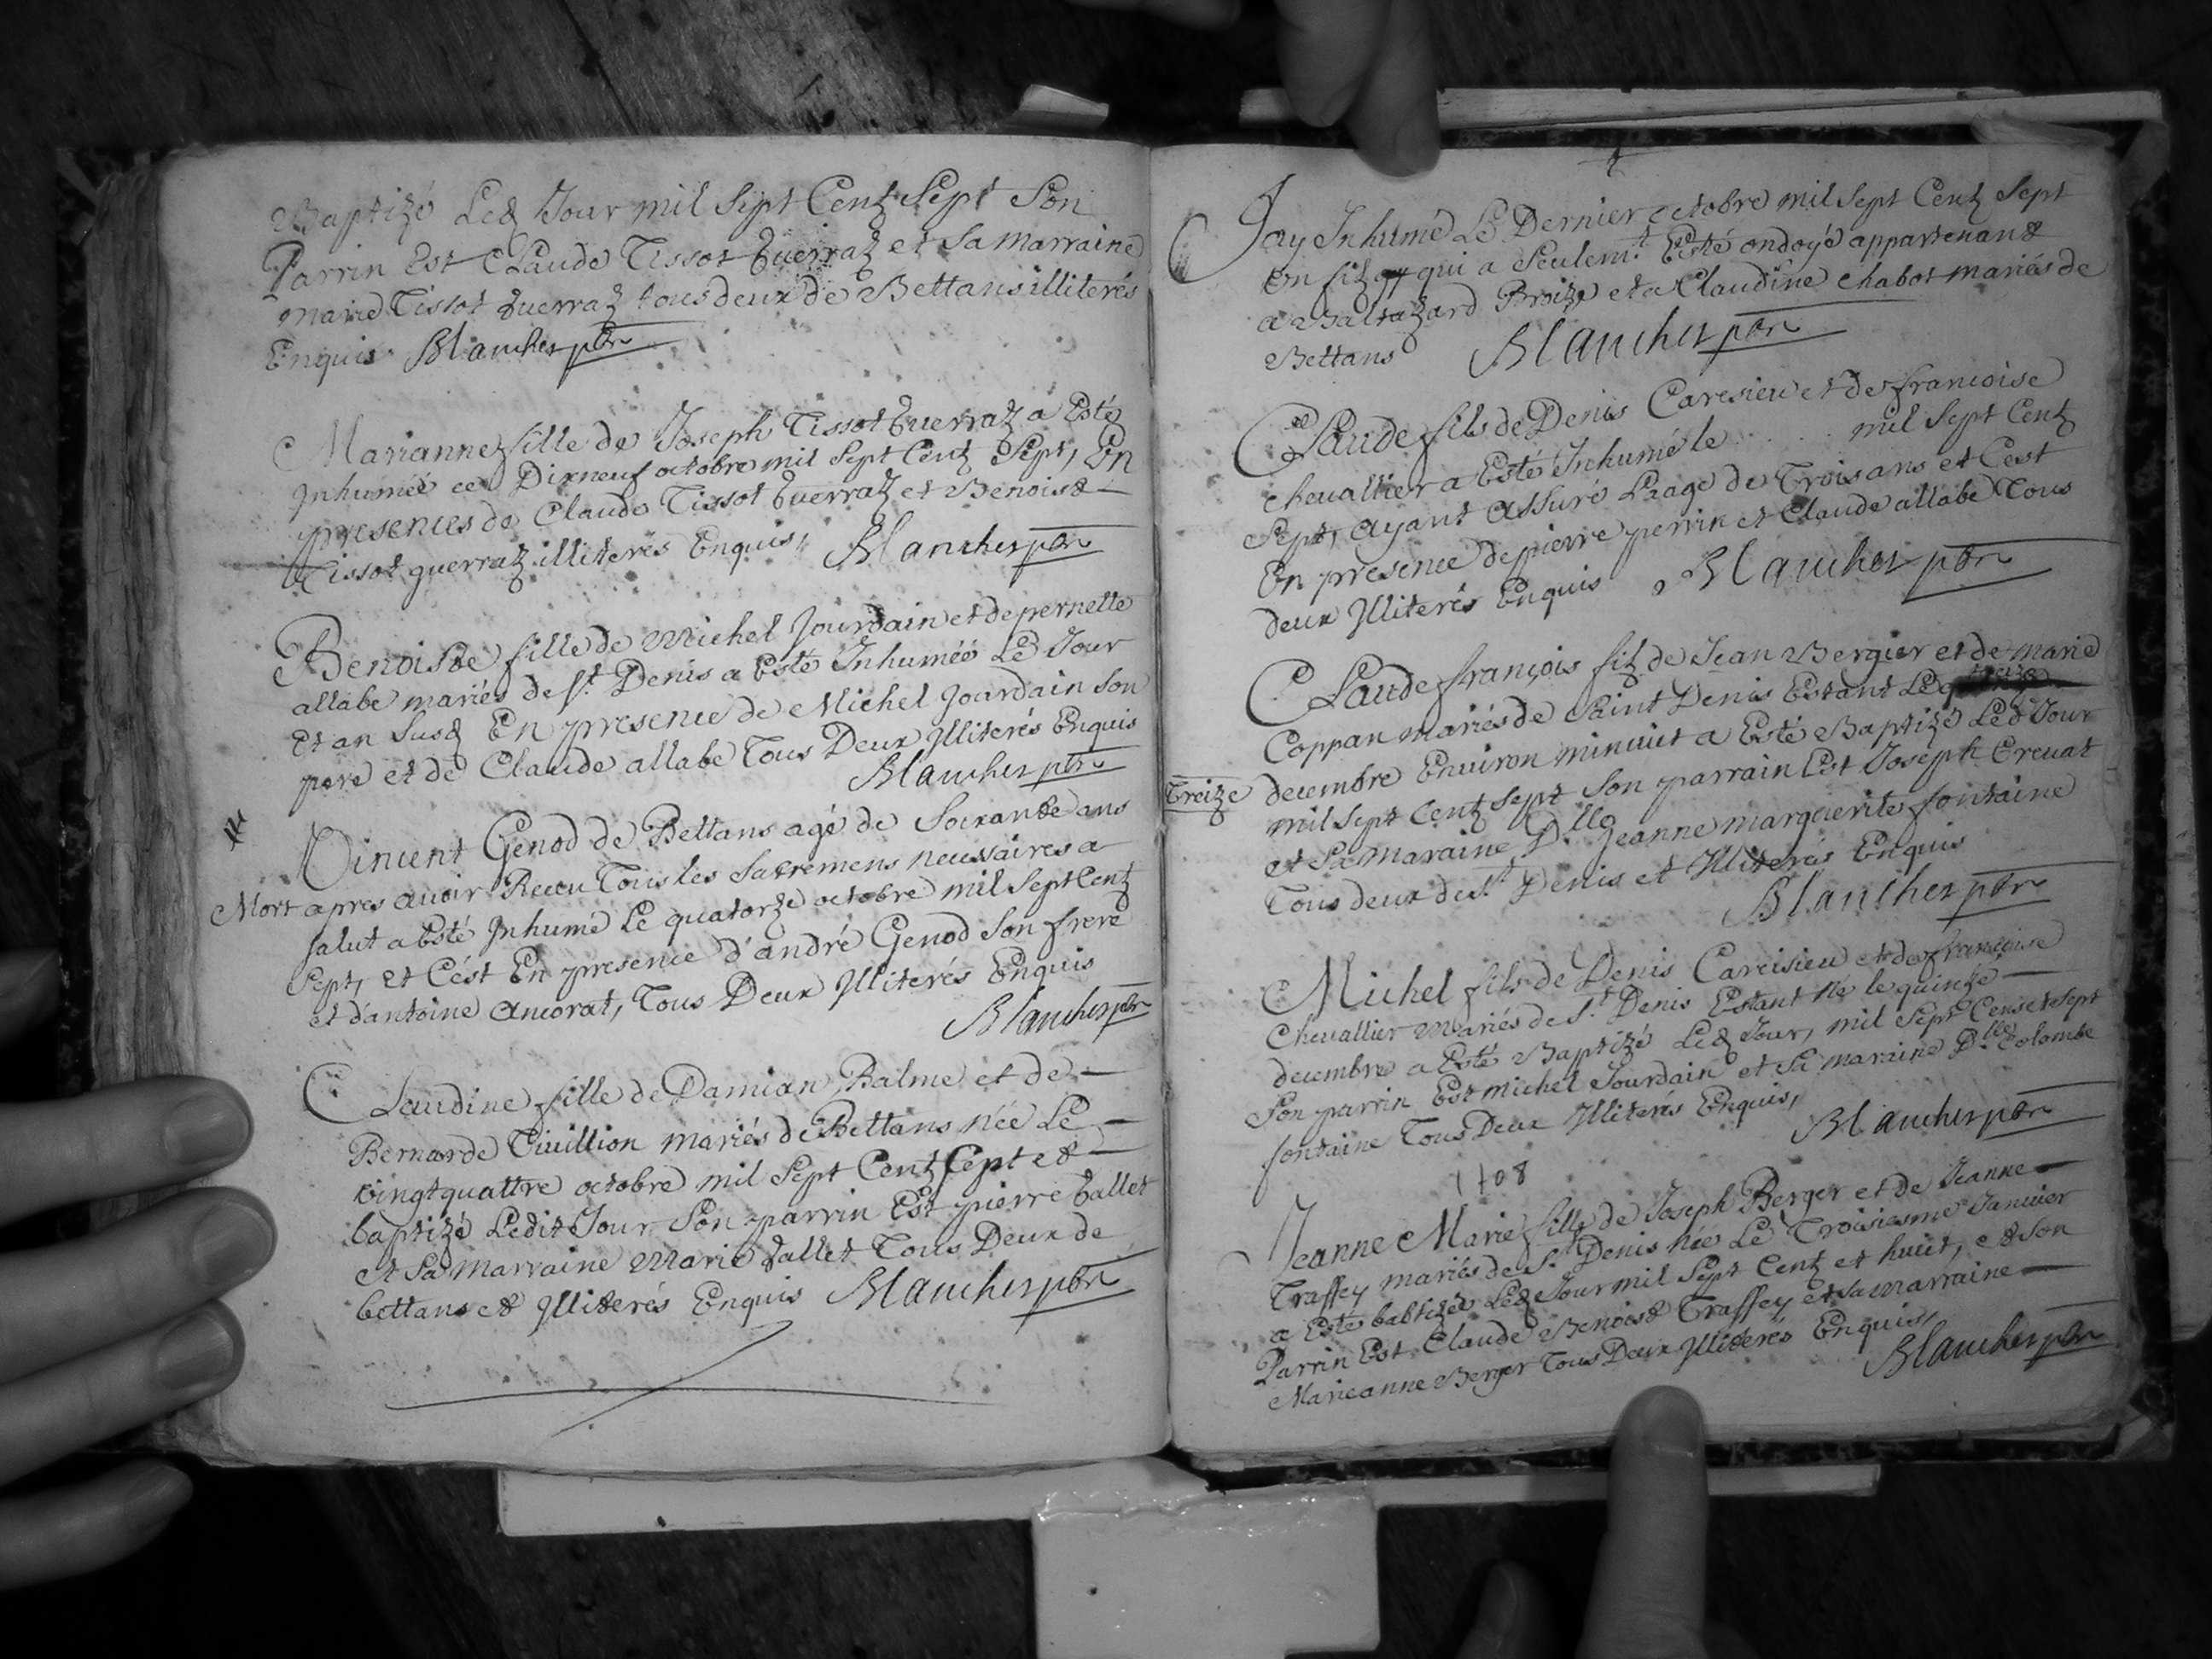 Baptizé Led Jour mil sept Centz Sept Son
Parrin Est Claude Tissot guerraz et Sa marraine
marie Tissot guerraz tous deux de Bettans illiterés
Enquis Blanchet pbre
Marianne fille de Joseph Tissot guerraz a Esté
Inhumée ce Dixneuf octobre mil Sept Centz Sept, En
presences de Claude Tissot guerraz et Benoist
Tissot guerraz illiterés Enquis, Blanchet pbre
Benoiste fille de Michel Jourdain et de pernette
allabe mariés de St Denis a Esté Inhumée Le Jour
Et an Susd En presence de Michel Jourdain son
pere et de Claude allabe Tous Deux Illiterés Enquis
Blanchet pbre
Vincent Genod de Bettans agé de Soixante ans
Mort apres avoir Receu Tous les Sacremens necessaires a
salut a Esté Inhumé Le quatorze octobre mil Sept Centz
Sept, et C'ést En presence d'andré Genod Son frere
et d'antoine Ancorat, Tous Deux Illiterés Enquis
Blanchet pbre
Claudine fille de Damian Balme et de
Bernarde mariés de Bettans née Le
vingtquattre octobre mil Sept Centz Sept et
baptizé Ledit Jour Son parrin Est pierre vallet
et Sa marraine Marie vallet Tous Deux de
bettans et Illiterés Enquis Blanchet pbre
Jay Inhumé Le Dernier octobre mil Sept Centz Sept
Un filz qui a Seulemt Esté ondoyé appartenant
a Baltazard Broize et a Claudine Chabot mariés de
Bettans Blanchet pbre
Claude fils de Denis Caresieu et de francoise
chevallier a Esté Inhumé le . . . . mil Sept Centz
Sept, ayant assuré Laage de Trois ans et C'est
En presence de pierre perrin et Claude allabe Tous
deux Illiterés Enquis Blanchet pbre
Claude françois filz de Jean Bergier et de marie
Coppan mariés de Saint Denis Estant Le treize
Treize decembre Environ minuict a Esté Baptizé Led Jour
mil Sept Centz Sept Son parrain Est Joseph Crevat
et Sa maraine Dlle Jeanne marguerite fontaine
Tous deux de St Denis et Illiterés Enquis
Blanchet pbre
Michel fils de Denis Carcisieu et de francoise
Chevallier Mariés de St Denis Estant né le quinze
decembre a Esté Baptizé Led Jour, mil Sept Cens et Sept
Son parrin Est michel Jourdain et Sa maraine Dlle Colombe
fontaine Tous Deux Illiterés Enquis,
Blanchet pbre
1708
Jeanne Marie fille de Joseph Berger et de Jeanne
Traffey mariés de St Denis née Le Troisiesme Janvier
a Esté babtizée Led Jour mil Sept Centz et huict, et Son
Parrin Est Claude Benoist Traffey et Sa marraine
Marieanne Berger Tous Deux Illiterés Enquis,
Blanchet pbre